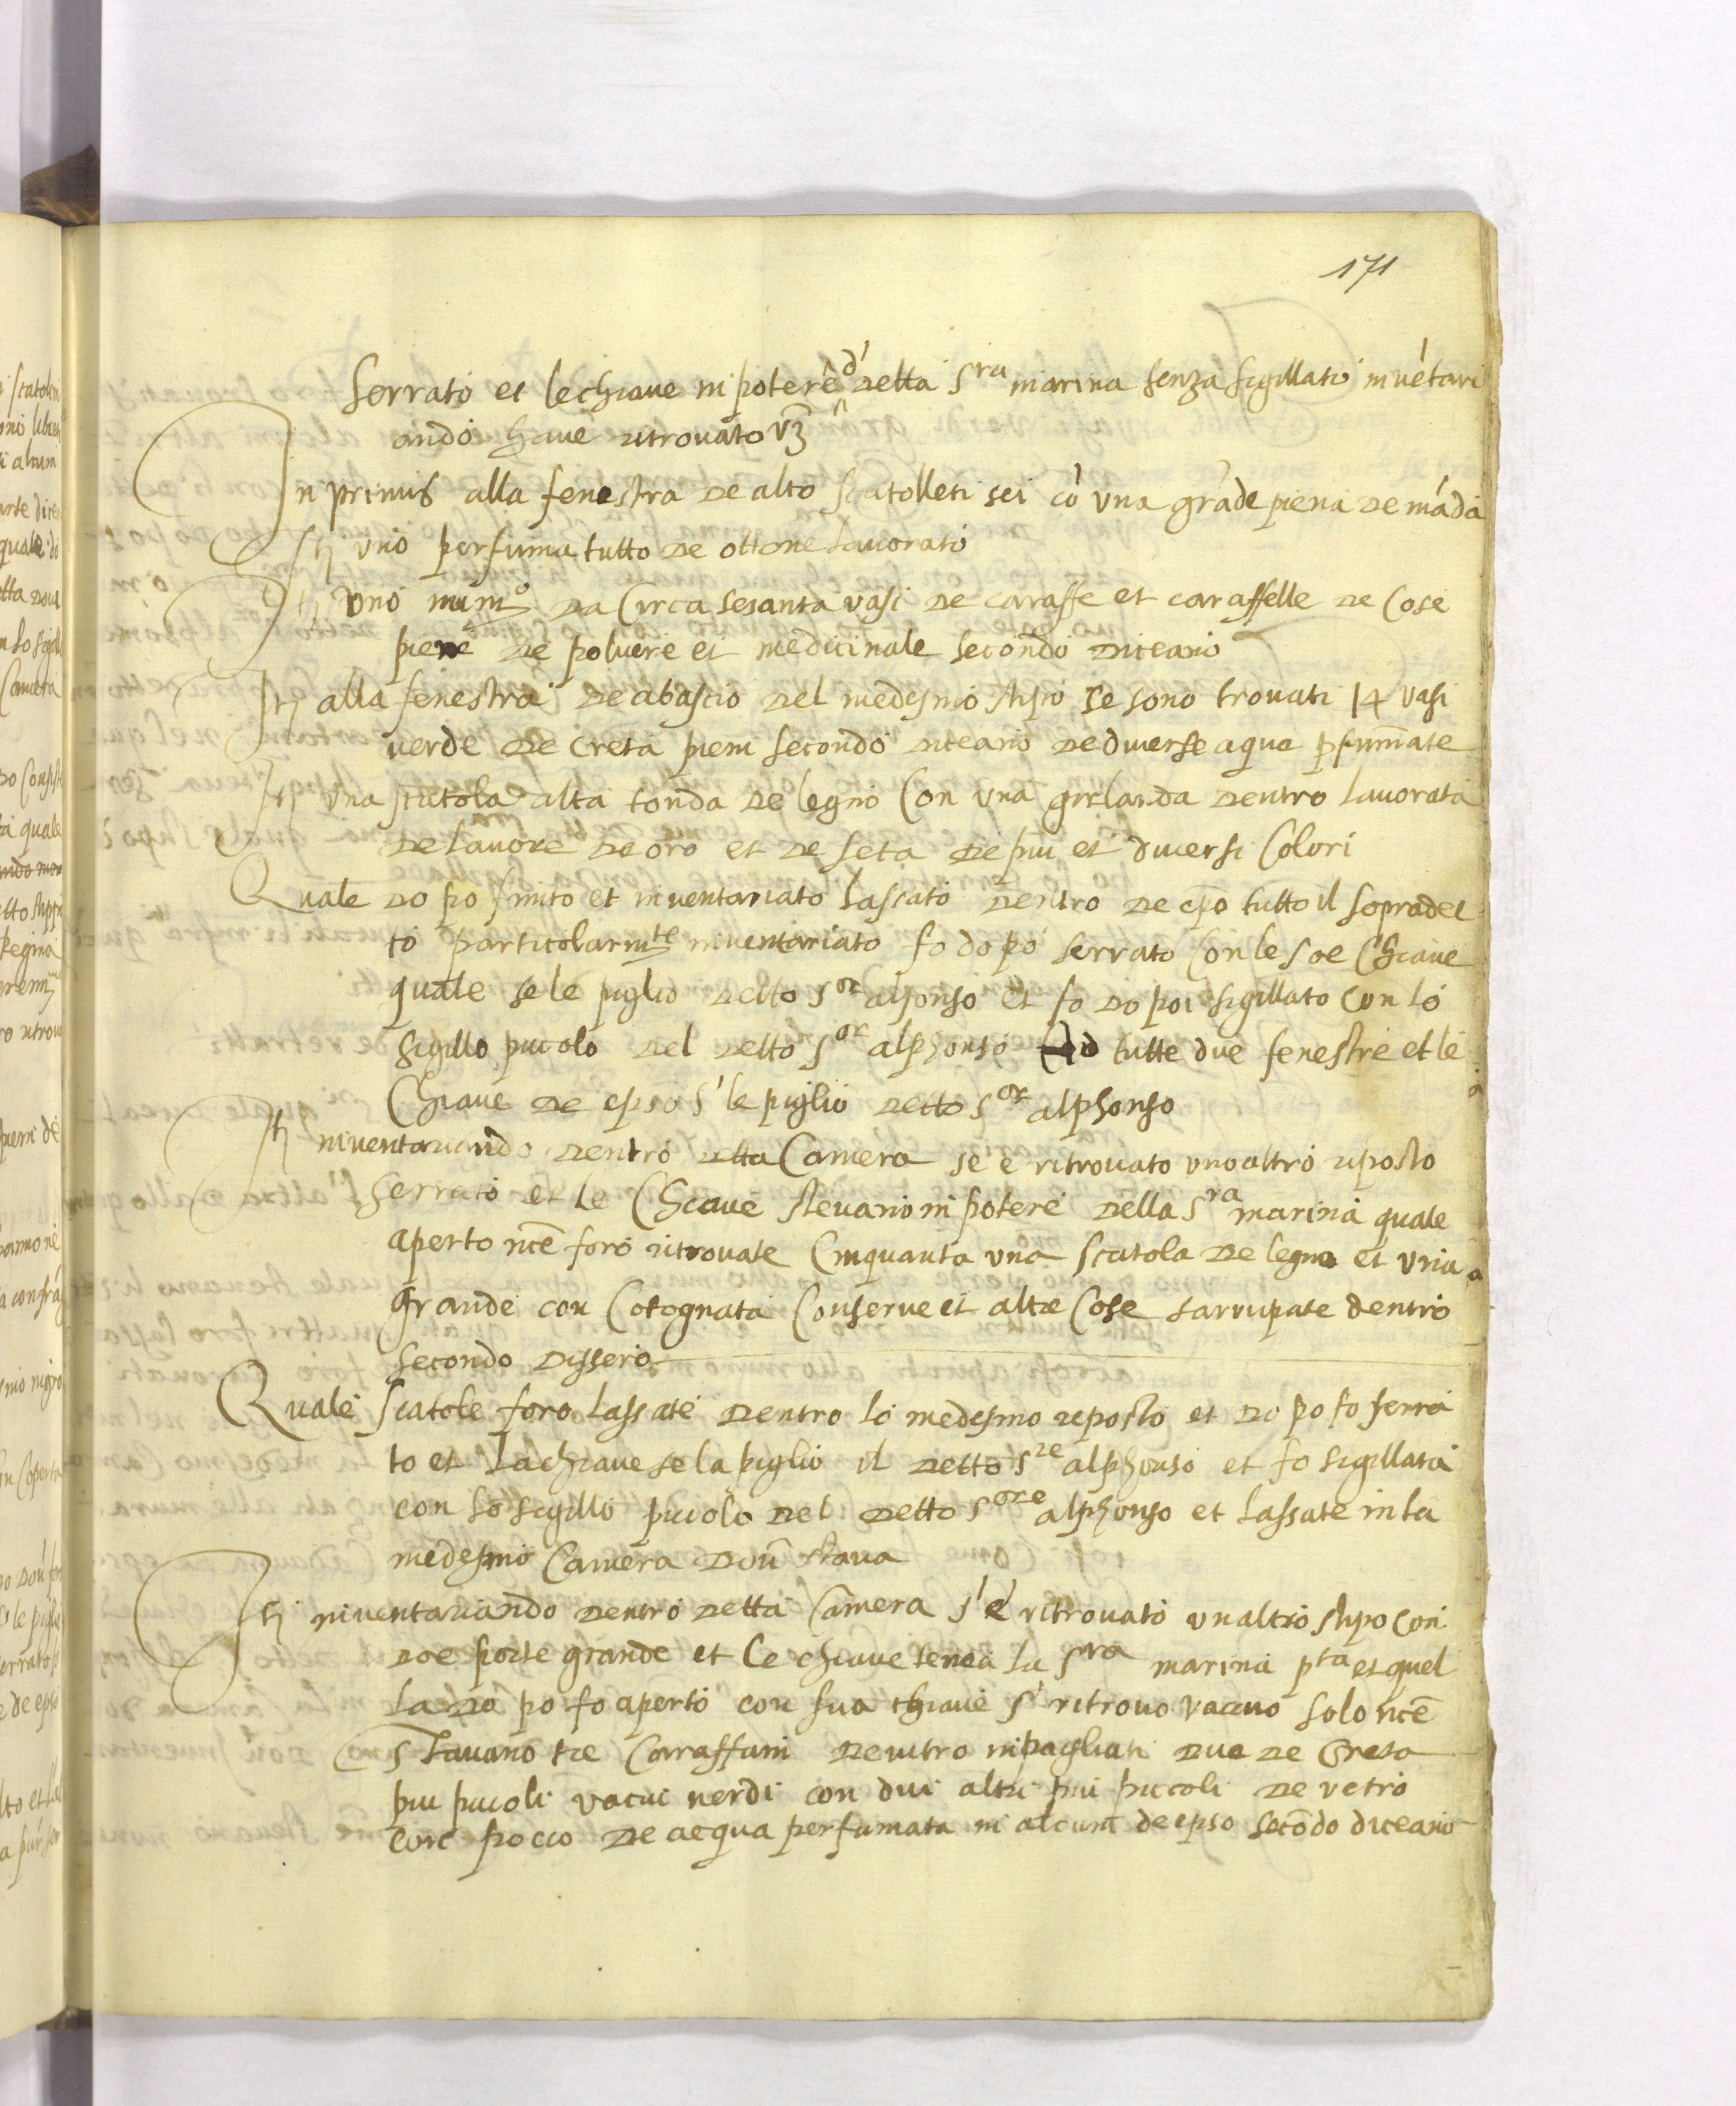 171
serrato et le chiave in potere d' detta s.ra marina senza sigillato invétari
ando have ritrovato vz
In primis alla fenestra de alto scatolleti sei có una gráde piena de máda
Iti uno perfuma tutto de ottone lavorato
Iti uno num.o da Circa sesanta vasi de caraffe et caraffelle de Cose
piene de polvere et medicinale secondo diceano
Iti alla fenestra de abascio del medesmo stipo se sono trovati 14 vasi
verde de creta pieni secondo diceano de diverse aqua pfumate
Iti una scatola alta tonda de legno Con una girlanda dentro lavorata
de lavore de oro et de seta de piu et diversi Colori
Quale do po finito et inventariato lassato dentro de epso tutto il sopradet
to particolarmte inventariato fo do po serrato Con le soe Chiave
quale se le piglio detto s.or alfonso et fo do poi sigillato con lo
sigillo picolo del detto s.or alphonso tutte due fenestre et le
Chiave de epso s' le piglio detto s.or alphonso
Iti inventariando dentro detta Camera se é ritrovato uno altro riposto
serrato et le Chiave stevano in potere della s.ra marina quale
aperto nce foro ritrovate Cinquanta una scatola de legno et una
grande con Cotognata Conserve et altre Cose sarrupate dentro
secondo dissero
Quale scatole foro lassate dentro lo medesmo reposto et do po fo serra
to et la chiave se la piglio il detto s.re alphonso et fo sigillata
con lo sigillo piciolo del detto s.ore alphonso et lassate in la
medesmo Camera dove stava
Iti inventariando dentro detta Camera s' é ritrovato un altro stipo con
doe porte grande et le chiave tenea la s.ra marina pta et quel
la do po fo aperto con sua chiave s' ritrovo vacuo solo nce
stavano tre Carraffuni de vitro inpagliati due de Creta
piu picioli vacui verdi con dui altri piu piccoli de vetro
con pocco de acqua perfumata in alcuni de epso secódo diceano